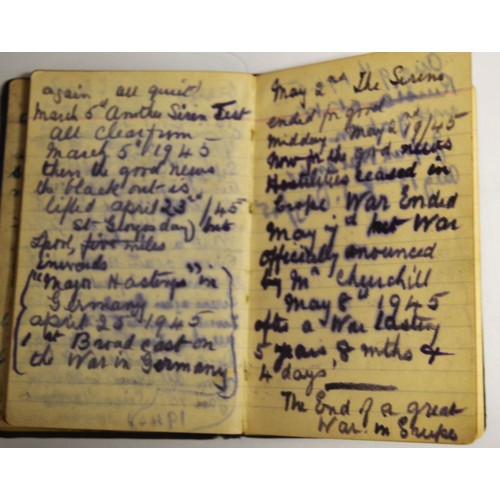 again all quiet
March 5th Another Siren Test
All Clear from
March 5th 1945
then the good news
the black out is
lifted April 23rd/45
St Georges day but
5 miles
inwards
"Major Hastings" in
Germany
April 25 1945
1st Broad cast on
the War in Germany
May 2nd The Sirens
ended for good
midday May 2nd 19/45
Now for the good news
Hostilities ceased in
Europe War Ended
May 7th but War
officially anounced
by Mr Churchill
May 8th 1945
after a War lasting
5 years, 8 mths &
4 days
The End of a great
War in Europe